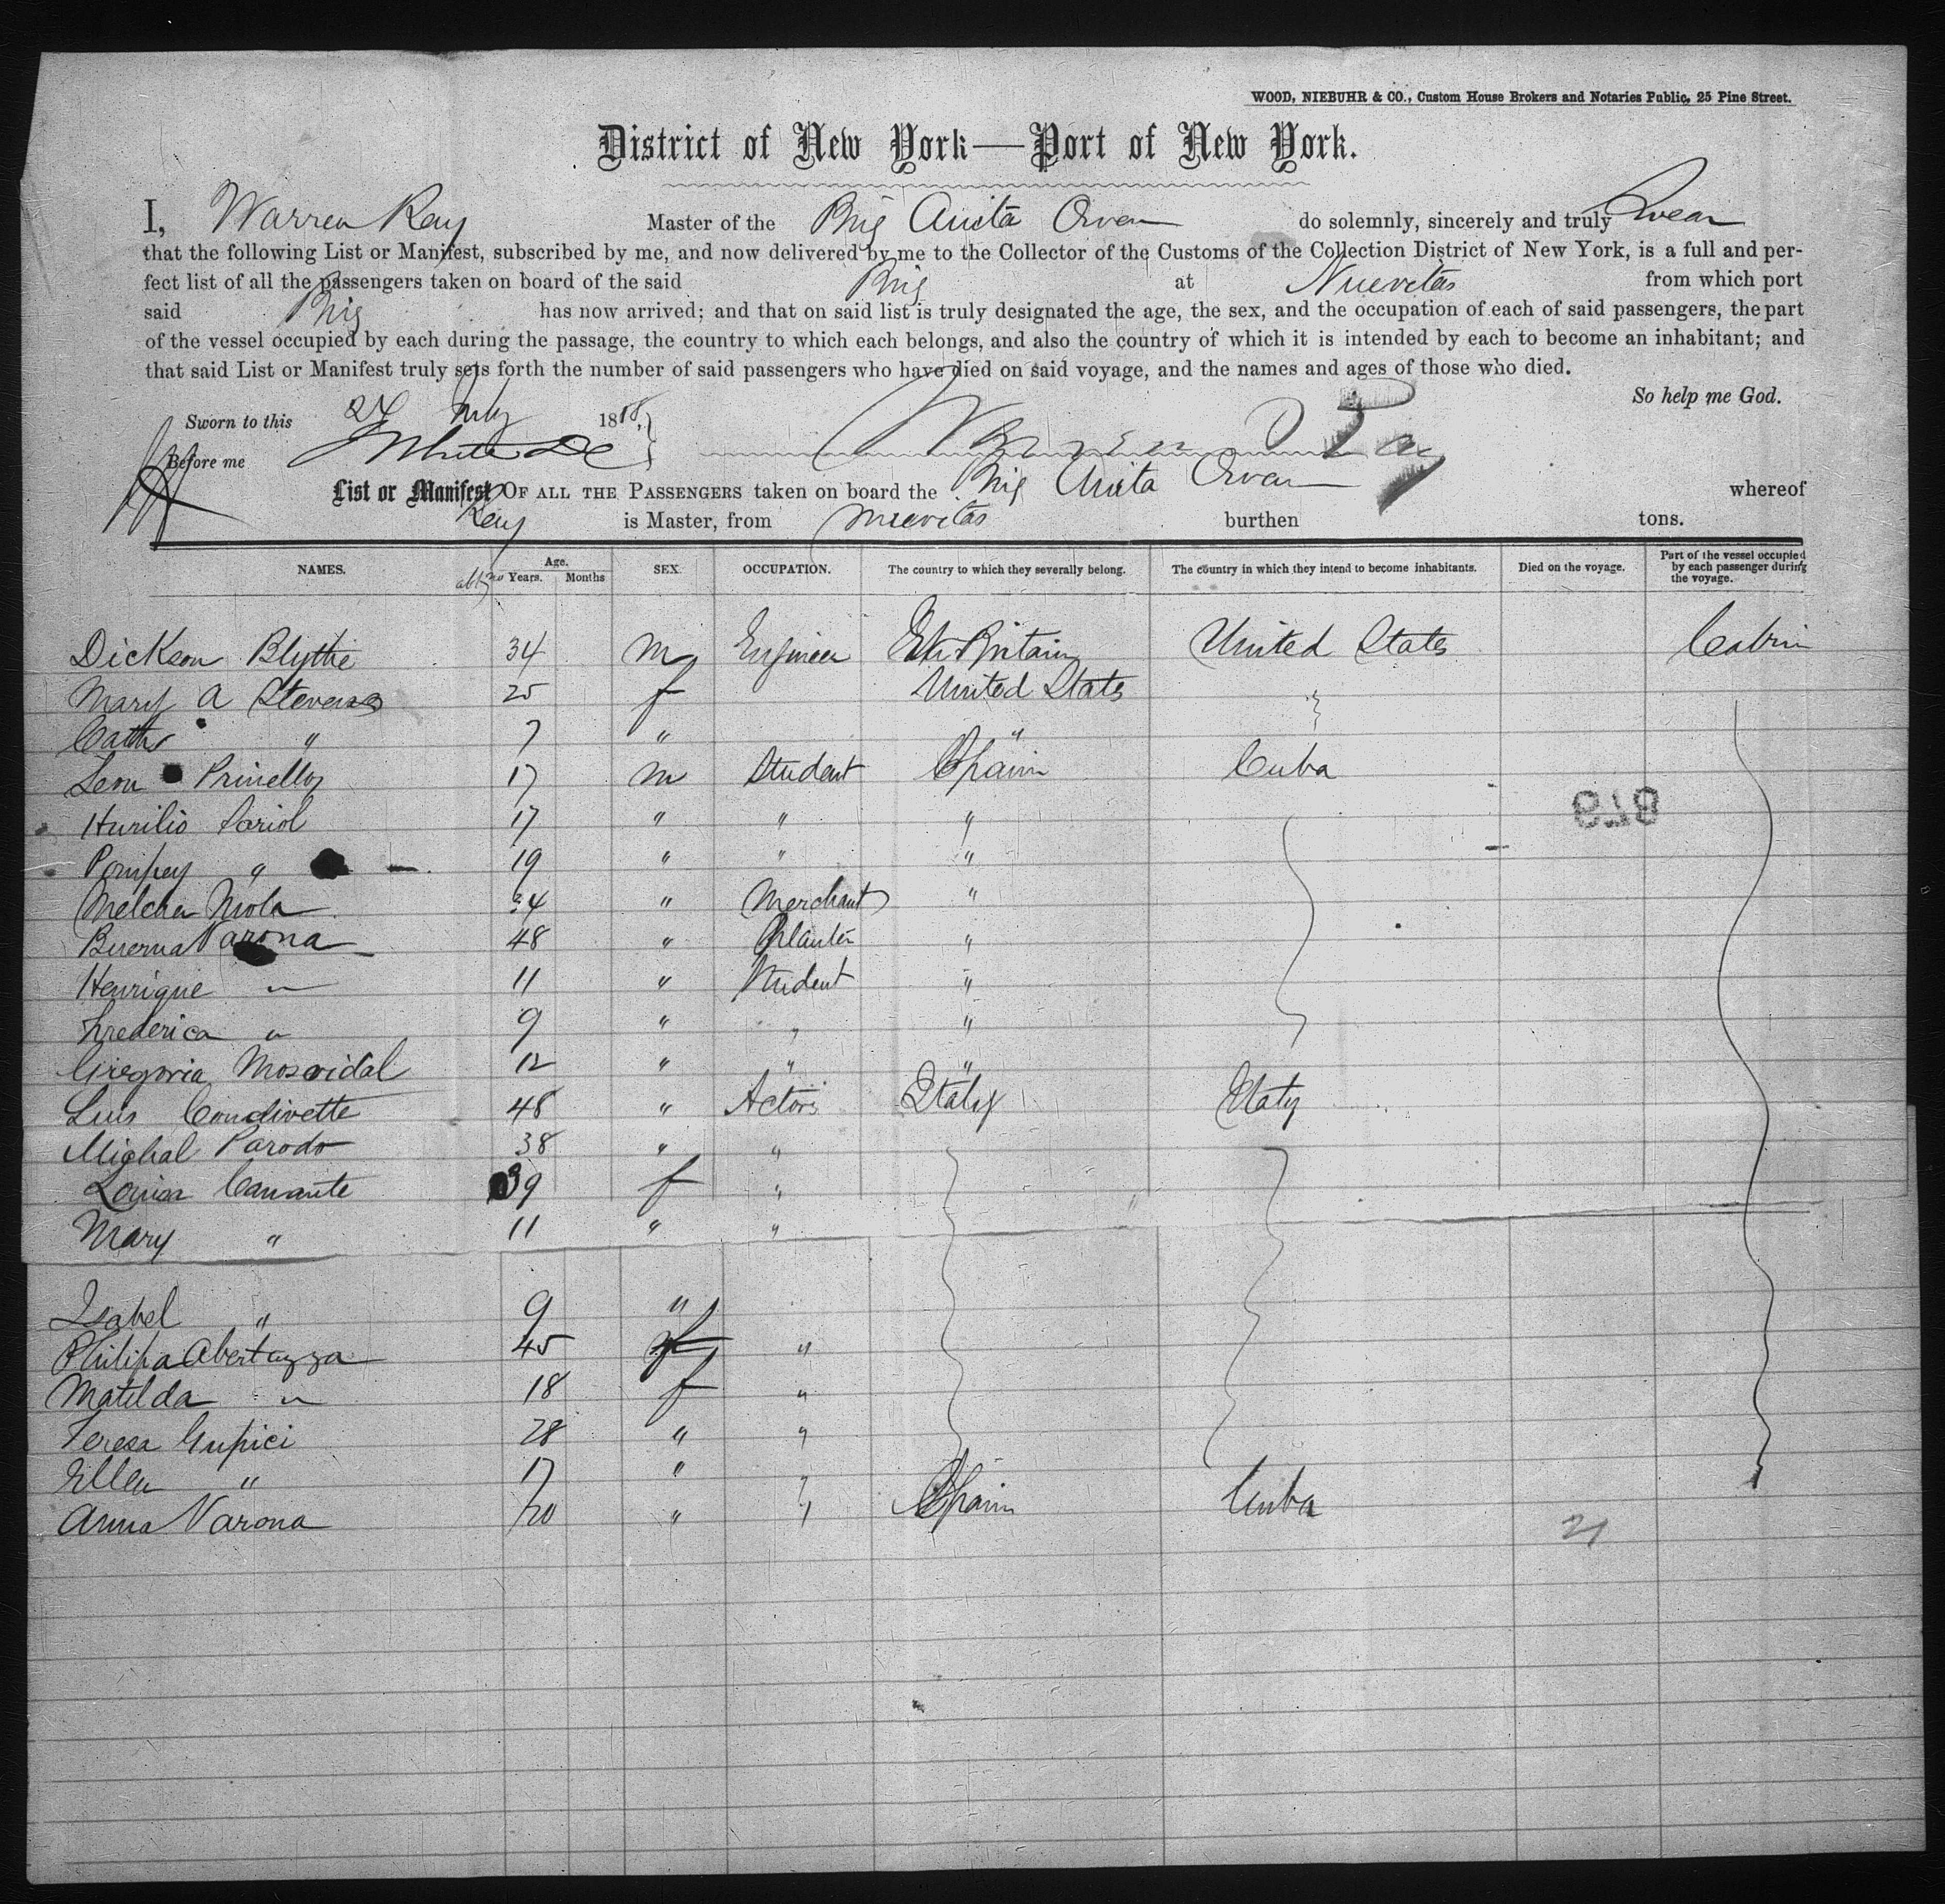 WOOD, NIEBUHR & CO., Custom House Brokers and Notaries Public, 25 Pine Street.
District of New York—Port of New York.
I, Warren Ray Master of the Brig Anita Owen do solemnly, sincerely and truly Swear
that the following List or Manifest, subscribed by me, and now delivered by me to the Collector of the Customs of the Collection District of New York, is a full and per-
fect list of all the passengers taken on board of the said Brig at Nuevitas from which port
said Brig has now arrived; and that on said list is truly designated the age, the sex, and the occupation of each of said passengers, the part
of the vessel occupied by each during the passage, the country to which each belongs, and also the country of which it is intended by each to become an inhabitant; and
that said List or Manifest truly sets forth the number of said passengers who have died on said voyage, and the names and ages of those who died.
So help me God.
Sworn to this 27 July 1878, Warren Ray
Before me
List or Manifest OF ALL THE PASSENGERS taken on board the Brig Anita Owen whereof
Ray is Master, from Nuevitas burthen tons.
NAMES. Age. Years. Months SEX. OCCUPATION. The country to which they severally belong. The country in which they intend to become inhabitants. Died on the voyage. Part of the vessel occupied by each passenger during the voyage.
Dickson Blythe 34 M Engineer Gt Britain United States Cabin
Mary A Stevens 25 f United States "
Cath " 7 " "
Leon Prinellos 17 m Student Spain Cuba
Hurilio Sariol 17 " " "
878
Pompey " 19 " " "
Melcher Mola 34 " Merchant "
Buerna Varona 48 " Planter "
Henrique " 11 " Student "
Frederica " 9 " " "
Gregoria Mosvidal 12 " " "
Luis Condivette 48 " Actors Italy Italy
Mighal Parodo 38 " "
Louisa Canante 39 f "
Mary " 11 " "
Isabel " 9 "
Philipa Abertazza 45 f "
Matilda " 18 f "
Teresa Gupici 28 " "
Ellen " 17 " "
Anna Varona 20 " " Spain Cuba
21